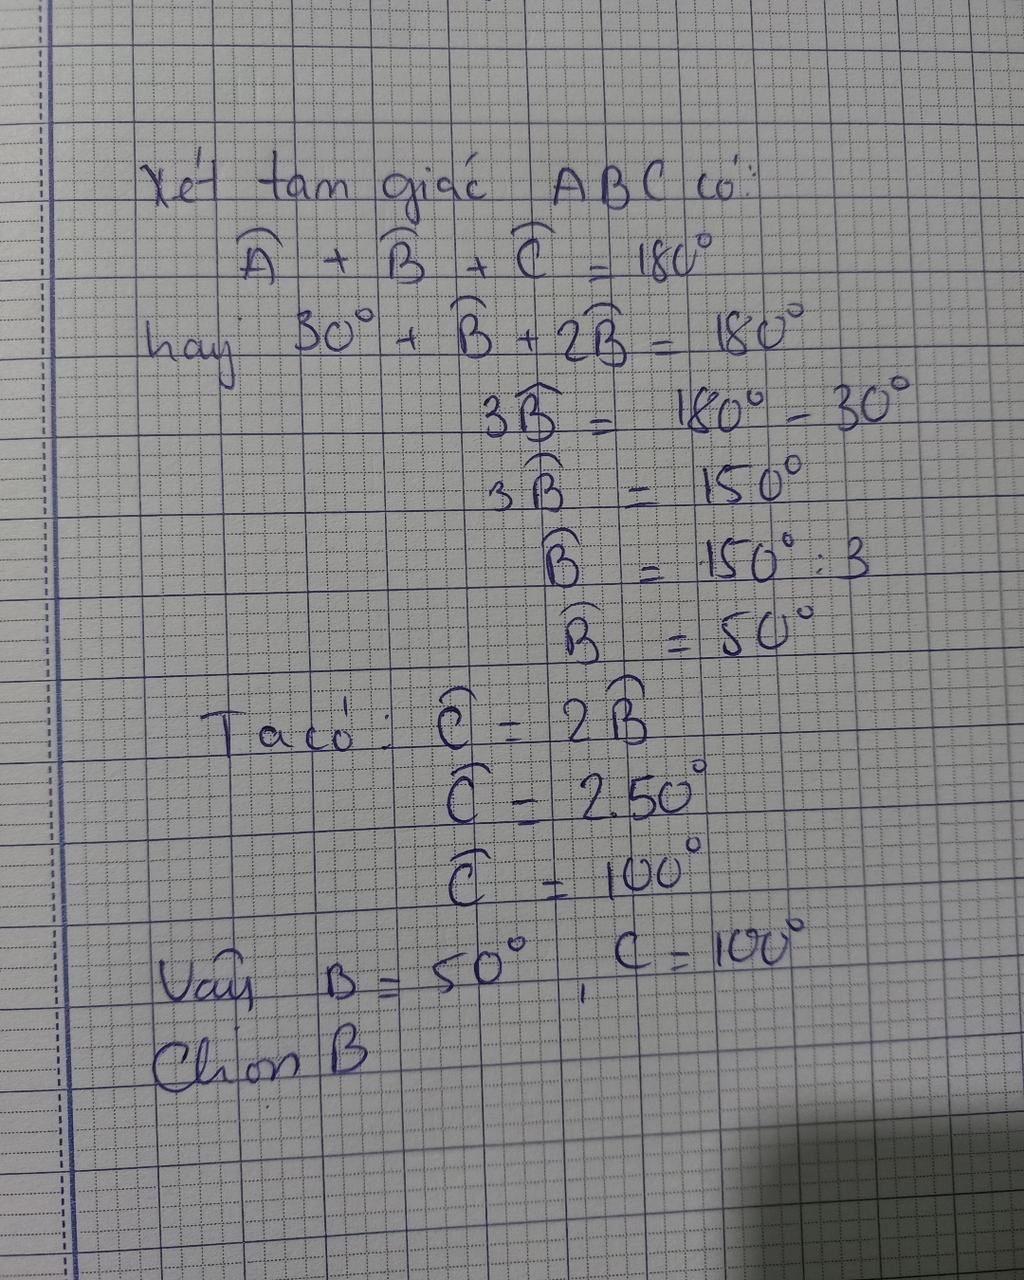 Xét tam giác ABC có:
Â + B̂ + Ĉ = 180°
hay 30° + B̂ + 2B̂ = 180°
3B̂ = 180° - 30°
3B̂ = 150°
B̂ = 150° : 3
B̂ = 50°
Ta có: Ĉ = 2B̂
Ĉ = 2.50°
Ĉ = 100°
Vậy B = 50° , C = 100°
Chọn B